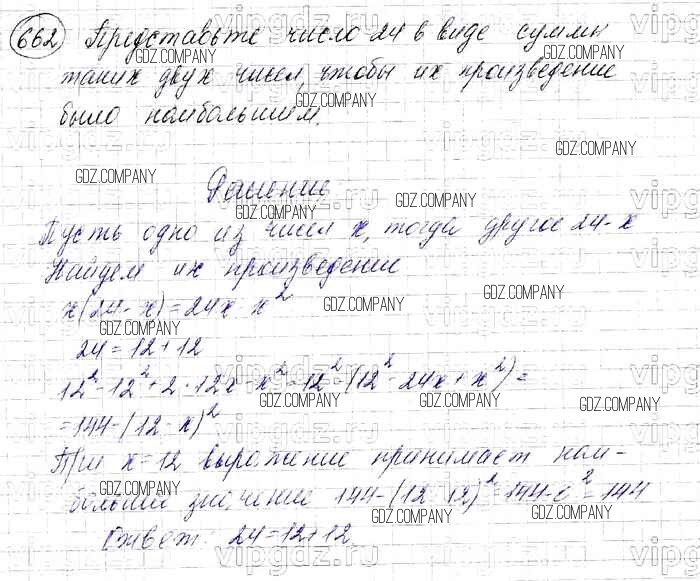 662 Представьте число 24 в виде суммы
таких двух чисел, чтобы их произведение
было наибольшим.
Решение
Пусть одно из чисел x, тогда другое 24-x
Найдем их произведение
x(24-x)=24x-x²
24=12+12
12²-12²+2·12x-x²=12²-(12²-24x+x²)=
=144-(12-x)²
При x=12 выражение принимает наи-
большее значение 144-(12-12)²=144-0²=144
Ответ: 24=12+12.
GDZ.COMPANY
vipgdz.ru